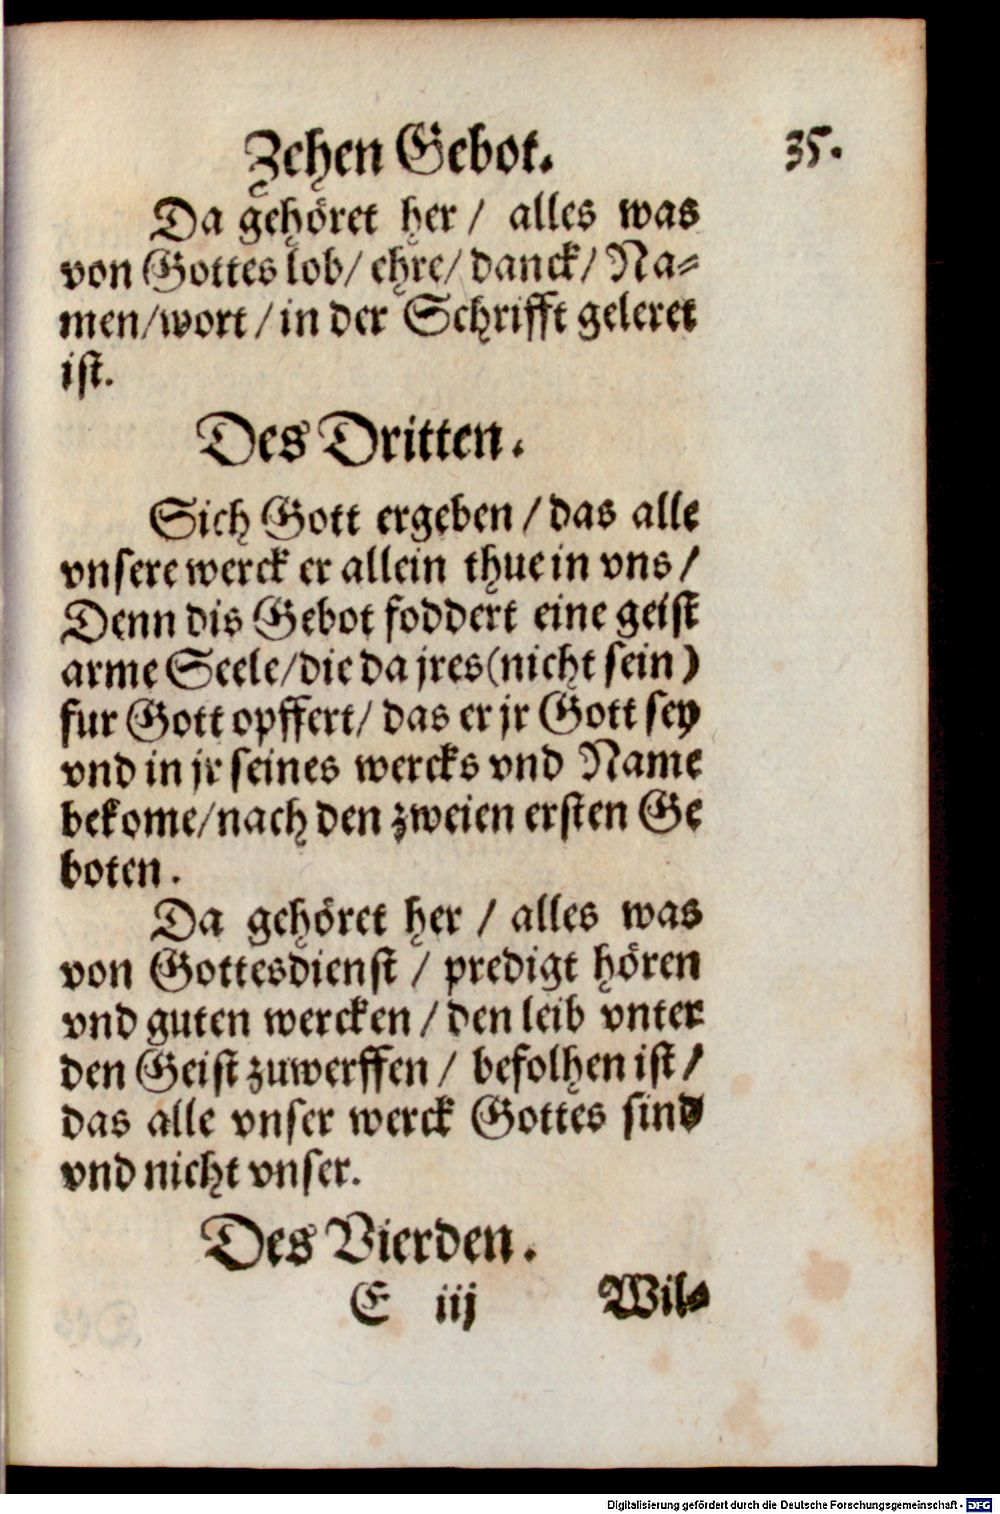 Zehen Gebot. 35.
Da gehöret her / alles was
von Gottes lob/ ehre/ danck/ Na⸗
men/wort / in der Schrifft geleret
ist.
Des Dritten.
Sich Gott ergeben / das alle
vnsere werck er allein thue in vns /
Denn dis Gebot foddert eine geist
arme Seele/die da jres (nicht sein )
fur Gott opffert/ das er jr Gott sey
vnd in jr seines wercks vnd Name
bekome/nach den zweien ersten Ge
boten.
Da gehöret her / alles was
von Gottesdienst / predigt hören
vnd guten wercken / den leib vnter
den Geist zuwerffen / befolhen ist /
das alle vnser werck Gottes sind
vnd nicht vnser.
Des Vierden.
E iij Wil⸗
Digitalisierung gefördert durch die Deutsche Forschungsgemeinschaft - DFG